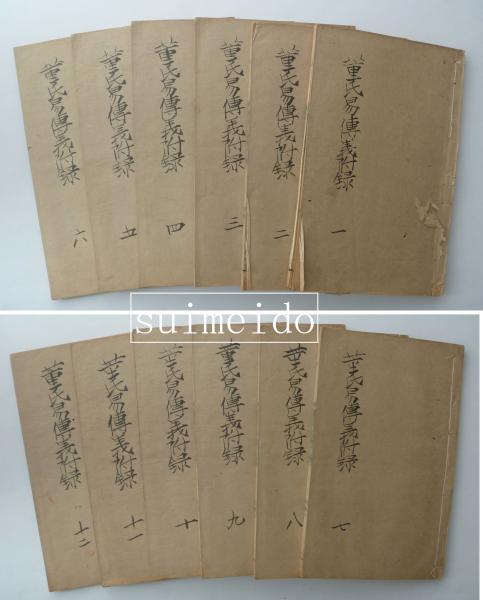 董氏易傳義附録
一
董氏易傳義附録
二
董氏易傳義附録
三
董氏易傳義附録
四
董氏易傳義附録
五
董氏易傳義附録
六
suimeido
董氏易傳義附録
七
董氏易傳義附録
八
董氏易傳義附録
九
董氏易傳義附録
十
董氏易傳義附録
十一
董氏易傳義附録
十二